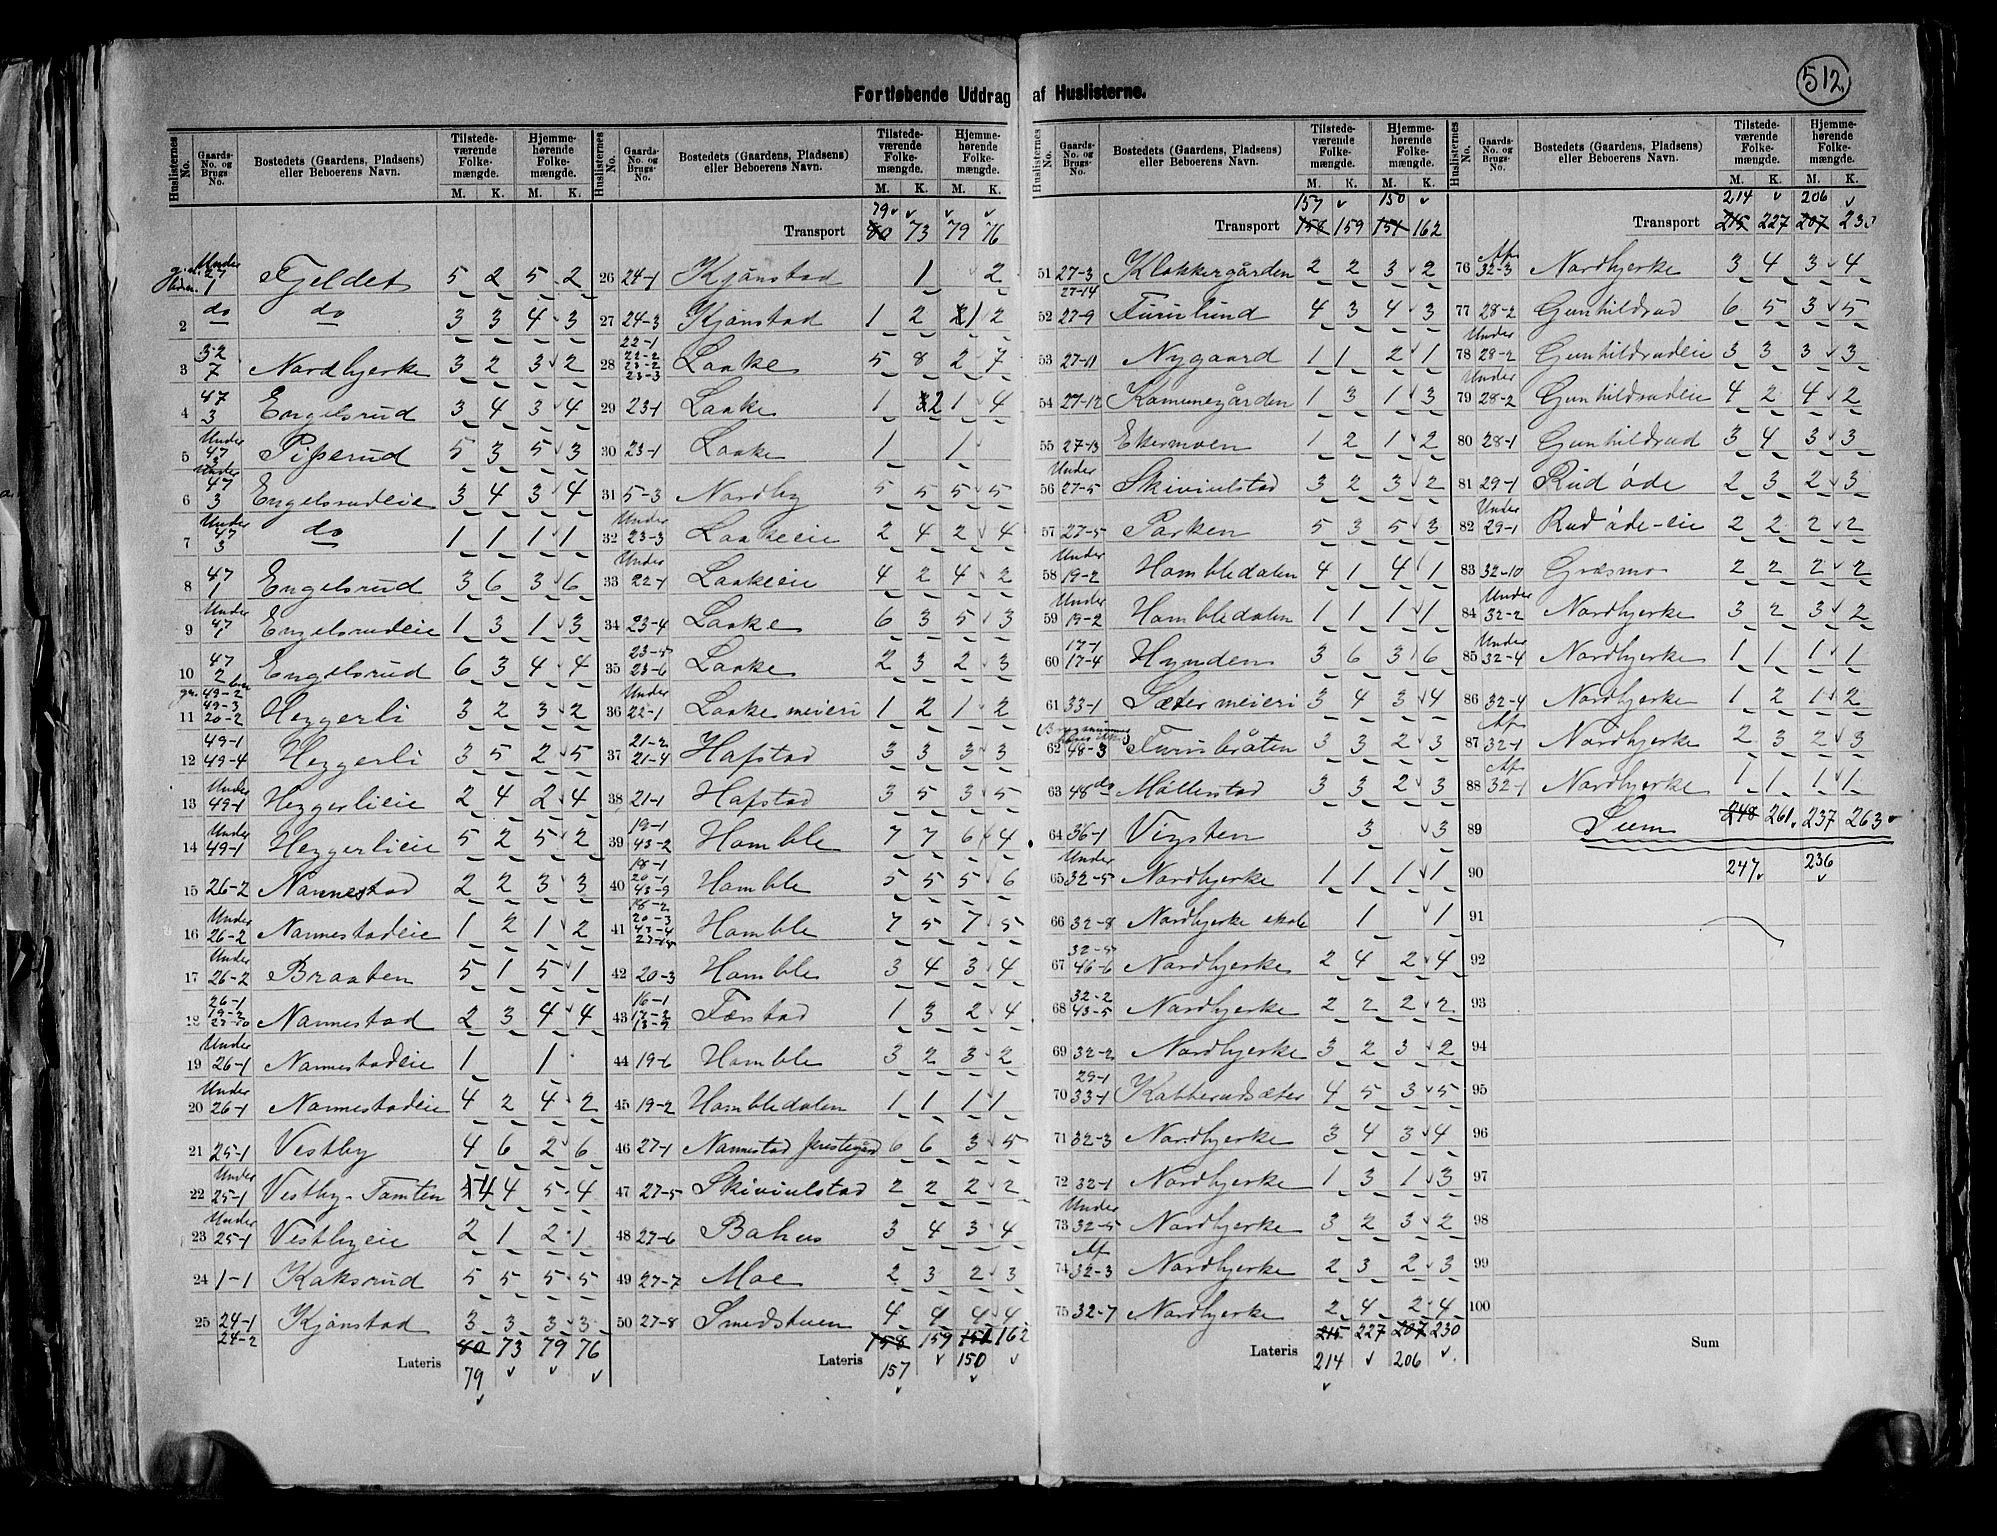 512.
Fortløbende Uddrag af Huslisterne.
Huslisternes No. Gaards-No. og Brugs-No. Bostedets (Gaardens, Pladsens) eller Beboerens Navn. Tilstedeværende Folkemængde. M. K. Hjemmehørende Folkemængde. M. K.
Under 27 1 Fjeldet 5 2 5 2
2 do do 3 3 4 3
3 32 7 Nordbyerke 3 2 3 2
4 47 3 Engelsrud 3 4 3 4
5 Under 47 3 Pisserud 5 3 5 3
6 Under 47 3 Engelsrudeie 3 4 3 4
7 Under 47 3 do 1 1 1 1
8 47 1 Engelsrud 3 6 3 6
9 Under 47 1 Engelsrudeie 1 3 1 3
10 47 2 Engelsrud 6 3 4 4
11 49-2 49-3 20-2 Heggerli 3 2 3 2
12 49-1 49-4 Heggerli 3 5 2 5
13 Under 49-1 Heggerlieie 2 4 2 4
14 Under 49-1 Heggerlieie 5 2 5 2
15 26-2 Nannestad 2 2 3 3
16 Under 26-2 Nannestadeie 1 2 1 2
17 Under 26-2 Braaten 5 1 5 1
18 26-1 19-3 27-10 Nannestad 2 3 4 4
19 Under 26-1 Nannestadeie 1 1
20 Under 26-1 Nannestadeie 4 2 4 2
21 25-1 Vestby 4 6 2 6
22 Under 25-1 Vestby-Tomten 4 4 5 4
23 Under 25-1 Vestbyeie 2 1 2 1
24 1-1 Koksrud 5 5 5 5
25 24-1 24-2 Kjønstad 3 3 3 3
Lateris 80 73 79 76
79
Huslisternes No. Gaards-No. og Brugs-No. Bostedets (Gaardens, Pladsens) eller Beboerens Navn. Tilstedeværende Folkemængde. M. K. Hjemmehørende Folkemængde. M. K.
79
Transport 80 73 79 76
26 24-1 Kjønstad 1 2
27 24-3 Kjønstad 1 2 1 2
28 22-1 22-2 23-2 23-3 Laake 5 8 2 7
29 23-1 Laake 1 2 1 4
30 23-1 Laake 1 1
31 5-3 Nordby 5 5 5 5
32 Under 23-3 Laakeeie 2 4 2 4
33 Under 22-1 Laakeeie 4 2 4 2
34 23-4 Laake 6 3 5 3
35 23-5 23-6 Laake 2 3 2 3
36 Under 22-1 Laake meieri 1 2 1 2
37 21-2 21-4 Hafstad 3 3 3 3
38 21-1 Hafstad 3 5 3 5
39 19-1 43-2 Homble 7 7 6 4
40 18-1 20-1 43-9 Homble 5 5 5 6
41 18-2 20-3 43-4 Homble 7 5 7 5
42 20-3 Homble 3 4 3 4
43 16-1 17-2 13-9 Færstad 1 3 2 4
44 19-6 Homble 3 2 3 2
45 19-2 Hombledalen 1 1 1 1
46 27-1 Nannestad prestegård 6 6 3 5
47 27-5 Skiviulstad 2 2 2 2
48 27-6 Bahus 3 4 3 4
49 27-7 Moe 2 3 2 3
50 27-8 Smedstuen 4 4 4 4
Lateris 158 159 151 162
157 150
Huslisternes No. Gaards-No. og Brugs-No. Bostedets (Gaardens, Pladsens) eller Beboerens Navn. Tilstedeværende Folkemængde. M. K. Hjemmehørende Folkemængde. M. K.
157 150
Transport 158 159 151 162
51 27-3 27-14 Klokkergården 2 2 3 2
52 27-9 Furulund 4 3 4 3
53 27-11 Nygaard 1 1 2 1
54 27-12 Komunegården 1 3 1 3
55 27-13 Ekermoen 1 2 1 2
56 Under 27-5 Skiviulstad 3 2 3 2
57 27-5 Parken 5 3 5 3
58 Under 19-2 Hombledalen 4 1 4 1
59 Under 19-2 Hombledalen 1 1 1 1
60 17-1 17-4 Hynden 3 6 3 6
61 33-1 Sæter meieri 3 4 3 4
62 48-3 Furubråten 3 3 2 3
63 48 do Møllerstad 3 3 2 3
64 36-1 Vigsten 3 3
65 Under 32-5 Nordbyerke 1 1 1 1
66 32-8 Nordbyerke skole 1 1
67 32-5 46-6 Nordbyerke 2 4 2 4
68 32-2 43-5 Nordbyerke 2 2 2 2
69 32-2 Nordbyerke 3 2 3 2
70 29-1 33-1 Katterudsæter 4 5 3 5
71 32-3 Nordbyerke 3 4 3 4
72 32-1 Nordbyerke 1 3 1 3
73 Under 32-5 Nordbyerke 3 2 3 2
74 Af 32-3 Nordbyerke 2 3 2 3
75 32-7 Nordbyerke 2 4 2 4
Lateris 215 227 207 230
214 206
Huslisternes No. Gaards-No. og Brugs-No. Bostedets (Gaardens, Pladsens) eller Beboerens Navn. Tilstedeværende Folkemængde. M. K. Hjemmehørende Folkemængde. M. K.
214 206
Transport 215 227 207 230
76 Af 32-3 Nordbyerke 3 4 3 4
77 28-2 Gunhildrud 6 5 3 5
78 Under 28-2 Gunhildrudeie 3 3 3 3
79 Under 28-2 Gunhildrudeie 4 2 4 2
80 28-1 Gunhildrud 3 4 3 3
81 29-1 Rud øde 2 3 2 3
82 Under 29-1 Rud øde-eie 2 2 2 2
83 32-10 Græsmo 2 2 2 2
84 Under 32-2 Nordbyerke 3 2 3 2
85 Under 32-4 Nordbyerke 1 1 1 1
86 32-4 Nordbyerke 1 2 1 2
87 Af 32-1 Nordbyerke 2 3 2 3
88 Af 32-1 Nordbyerke 1 1 1 1
89 Sum 248 261 237 263
90 247 236
91
92
93
94
95
96
97
98
99
100
Sum